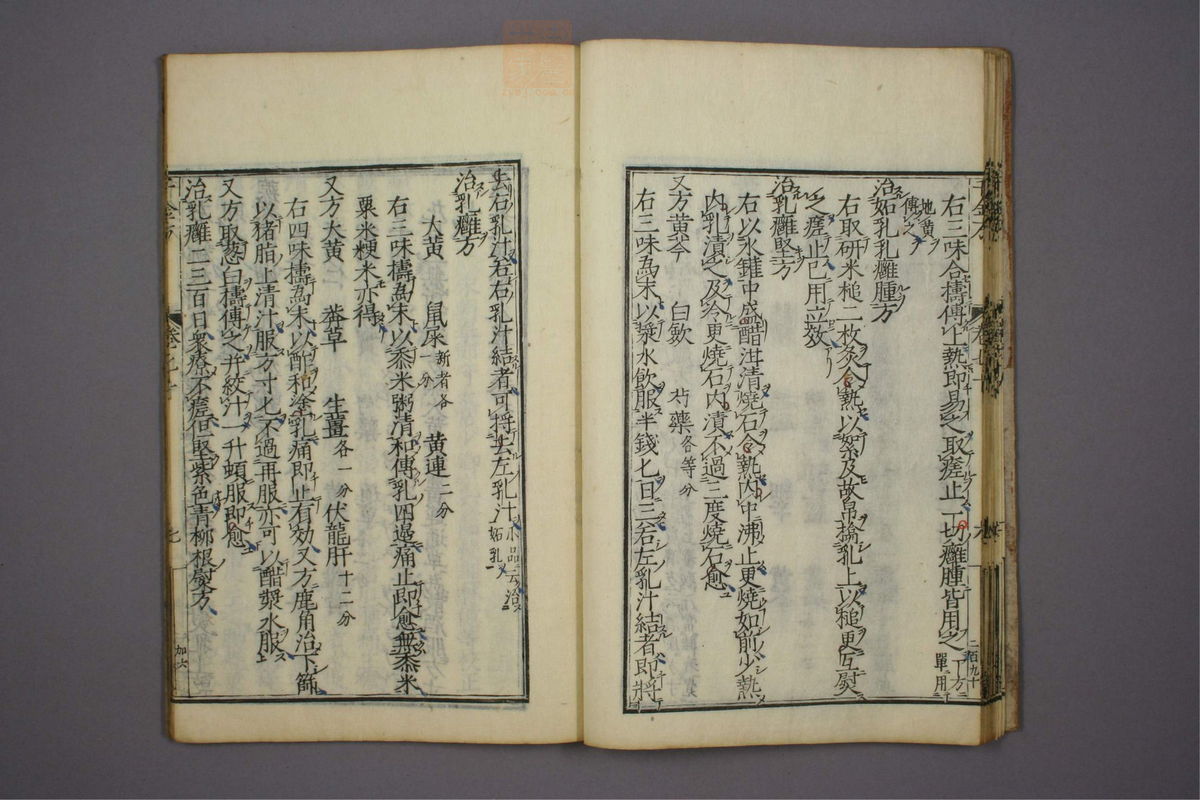 右三味合擣傅上熱即易之取瘥止一切癰腫皆用之一方二百九十單用
地黄傅之
治妬乳乳癰腫方
右取研米槌二枚炙令熱以絮及故帛搶乳上以槌更互熨
之瘥止已用立效
治乳癰堅方
右以水罐中盛醋泔清燒石令熱内中沸止更燒如前少熱
内乳漬之及冷更燒石内漬不過三度燒石愈
又方黄芩 白歛 芍藥各等分
右三味為末以漿水飲服半錢匕日三若左乳汁結者即將
去右乳汁若右乳汁結者可捋去左乳汁小品云治妬乳
治乳癰方
大黄 鼠屎新者各一分 黄連二分
右三味擣為末以黍米粥清和傅乳四邊痛止即愈無黍米
粟米粳米亦得
又方大黄 莽草 生薑各一分 伏龍肝十二分
右四味擣為末以酢和塗乳痛即止有効又方鹿角治下篩
以猪脂上清汁服方寸匕不過再服亦可以醋漿水服
又方取葱白擣傅之并絞汁一升頓服即愈
治乳癰二三百日衆療不瘥但堅紫色青柳根熨方